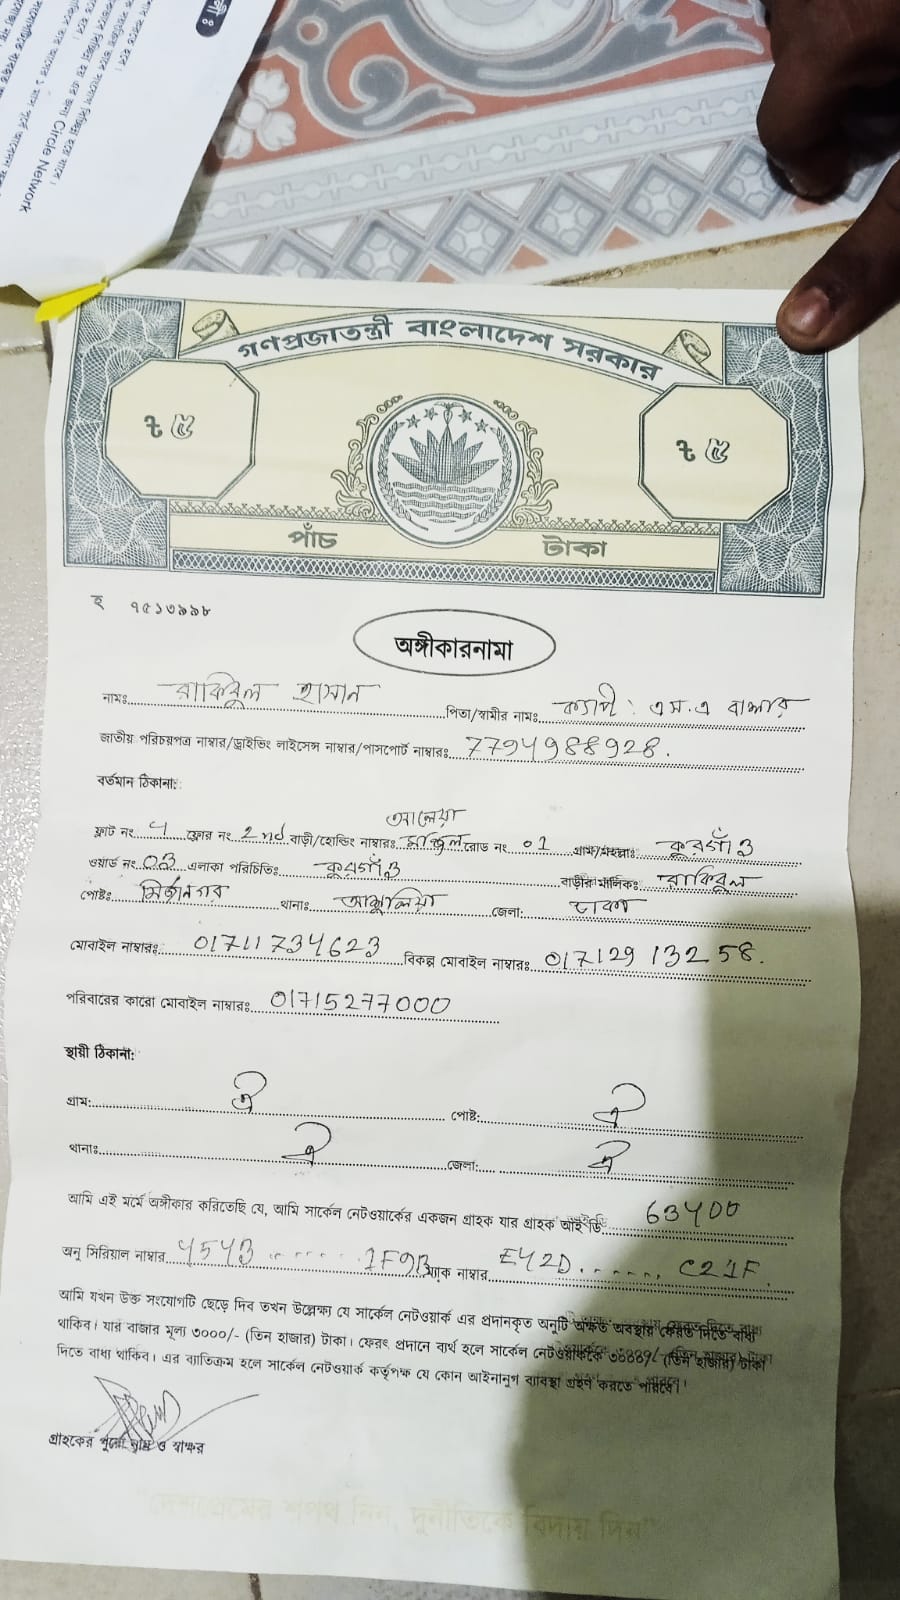 Circle Network
গণপ্রজাতন্ত্রী বাংলাদেশ সরকার
৳ ৫ ৳ ৫
পাঁচ টাকা
হ ৭৫১৩৯৯৮
অঙ্গীকারনামা
নামঃ রাকিবুল হাসান পিতা/স্বামীর নামঃ ক্যাপ্টঃ এম.এ বাশার
জাতীয় পরিচয়পত্র নাম্বার/ড্রাইভিং লাইসেন্স নাম্বার/পাসপোর্ট নাম্বারঃ 7794988928.
বর্তমান ঠিকানা:
ফ্লাট নং 4 ফ্লোর নং 2nd বাড়ী/হোল্ডিং নাম্বারঃ আলেয়া মঞ্জিল রোড নং 01 গ্রাম/মহল্লাঃ কুরগাঁও
ওয়ার্ড নং 03 এলাকা পরিচিতিঃ কুরগাঁও বাড়ীর মালিকঃ রাকিবুল
পোষ্টঃ মির্জানগর থানাঃ আশুলিয়া জেলা: ঢাকা
মোবাইল নাম্বারঃ 01711734623 বিকল্প মোবাইল নাম্বারঃ 01712913258.
পরিবারের কারো মোবাইল নাম্বারঃ 01715277000
স্থায়ী ঠিকানা:
গ্রাম: ঐ পোষ্ট: ঐ
থানাঃ ঐ জেলা: ঐ
আমি এই মর্মে অঙ্গীকার করিতেছি যে, আমি সার্কেল নেটওয়ার্কের একজন গ্রাহক যার গ্রাহক আইডি 63400
অনু সিরিয়াল নাম্বার 4543 ........ 1F9B ম্যাক নাম্বার E42D....... C21F.
আমি যখন উক্ত সংযোগটি ছেড়ে দিব তখন উল্লেক্ষ্য যে সার্কেল নেটওয়ার্ক এর প্রদানকৃত অনুটি অক্ষত অবস্থায় ফেরত দিতে বাধ্য
থাকিব। যার বাজার মূল্য ৩০০০/- (তিন হাজার) টাকা। ফেরৎ প্রদানে ব্যর্থ হলে সার্কেল নেটওয়ার্ককে (তিন হাজার) টাকা
দিতে বাধ্য থাকিব। এর ব্যতিক্রম হলে সার্কেল নেটওয়ার্ক কর্তৃপক্ষ যে কোন আইনানুগ ব্যবস্থা গ্রহণ করতে পারবে।
গ্রাহকের পুরো নাম ও স্বাক্ষর
"দেশপ্রেমের শপথ নিন, দুর্নীতিকে বিদায় দিন"